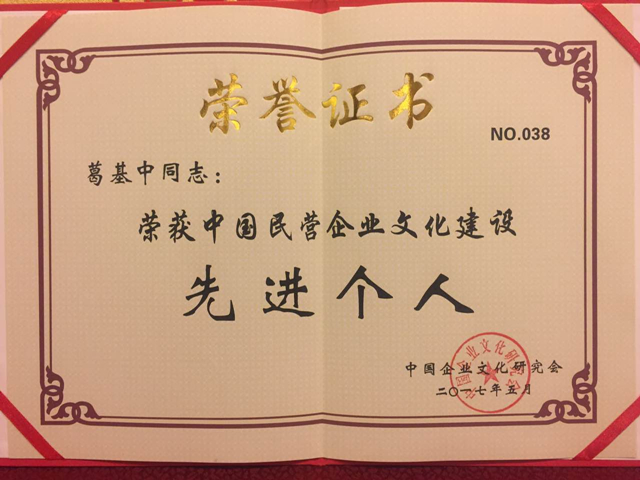 荣誉证书
NO.038
葛基中同志：
荣获中国民营企业文化建设
先进个人
中国企业文化研究会
二〇一七年五月
中国企业文化研究会